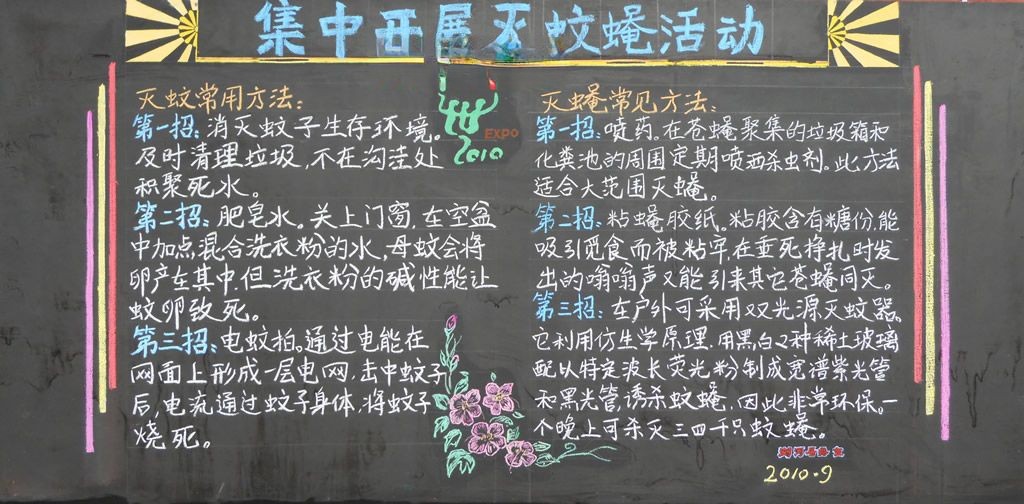 集中开展灭蚊蝇活动
灭蚊常用方法：
第一招：消灭蚊子生存环境。
及时清理垃圾，不在沟洼处
积聚死水。
第二招：肥皂水。关上门窗，在空盆
中加点混合洗衣粉的水，母蚊会将
卵产在其中，但洗衣粉的碱性能让
蚊卵致死。
第三招：电蚊拍，通过电能在
网面上形成一层电网，击中蚊子
后，电流通过蚊子身体，将蚊子
烧死。
世
EXPO
2010
灭蝇常见方法：
第一招：喷药，在苍蝇聚集的垃圾箱和
化粪池的周围定期喷洒杀虫剂。此方法
适合大范围灭蝇。
第二招：粘蝇胶纸。粘胶含有糖份，能
吸引觅食而被粘牢，在垂死挣扎时发
出的嗡嗡声又能引来其它苍蝇同灭。
第三招：在户外可采用双光源灭蚊器，
它利用仿生学原理，用黑白2种稀土玻璃
配以特定波长荧光粉制成宽谱紫光管
和黑光管，诱杀蚊蝇，因此非常环保。一
个晚上可杀灭三四千只蚊蝇。
2010.9